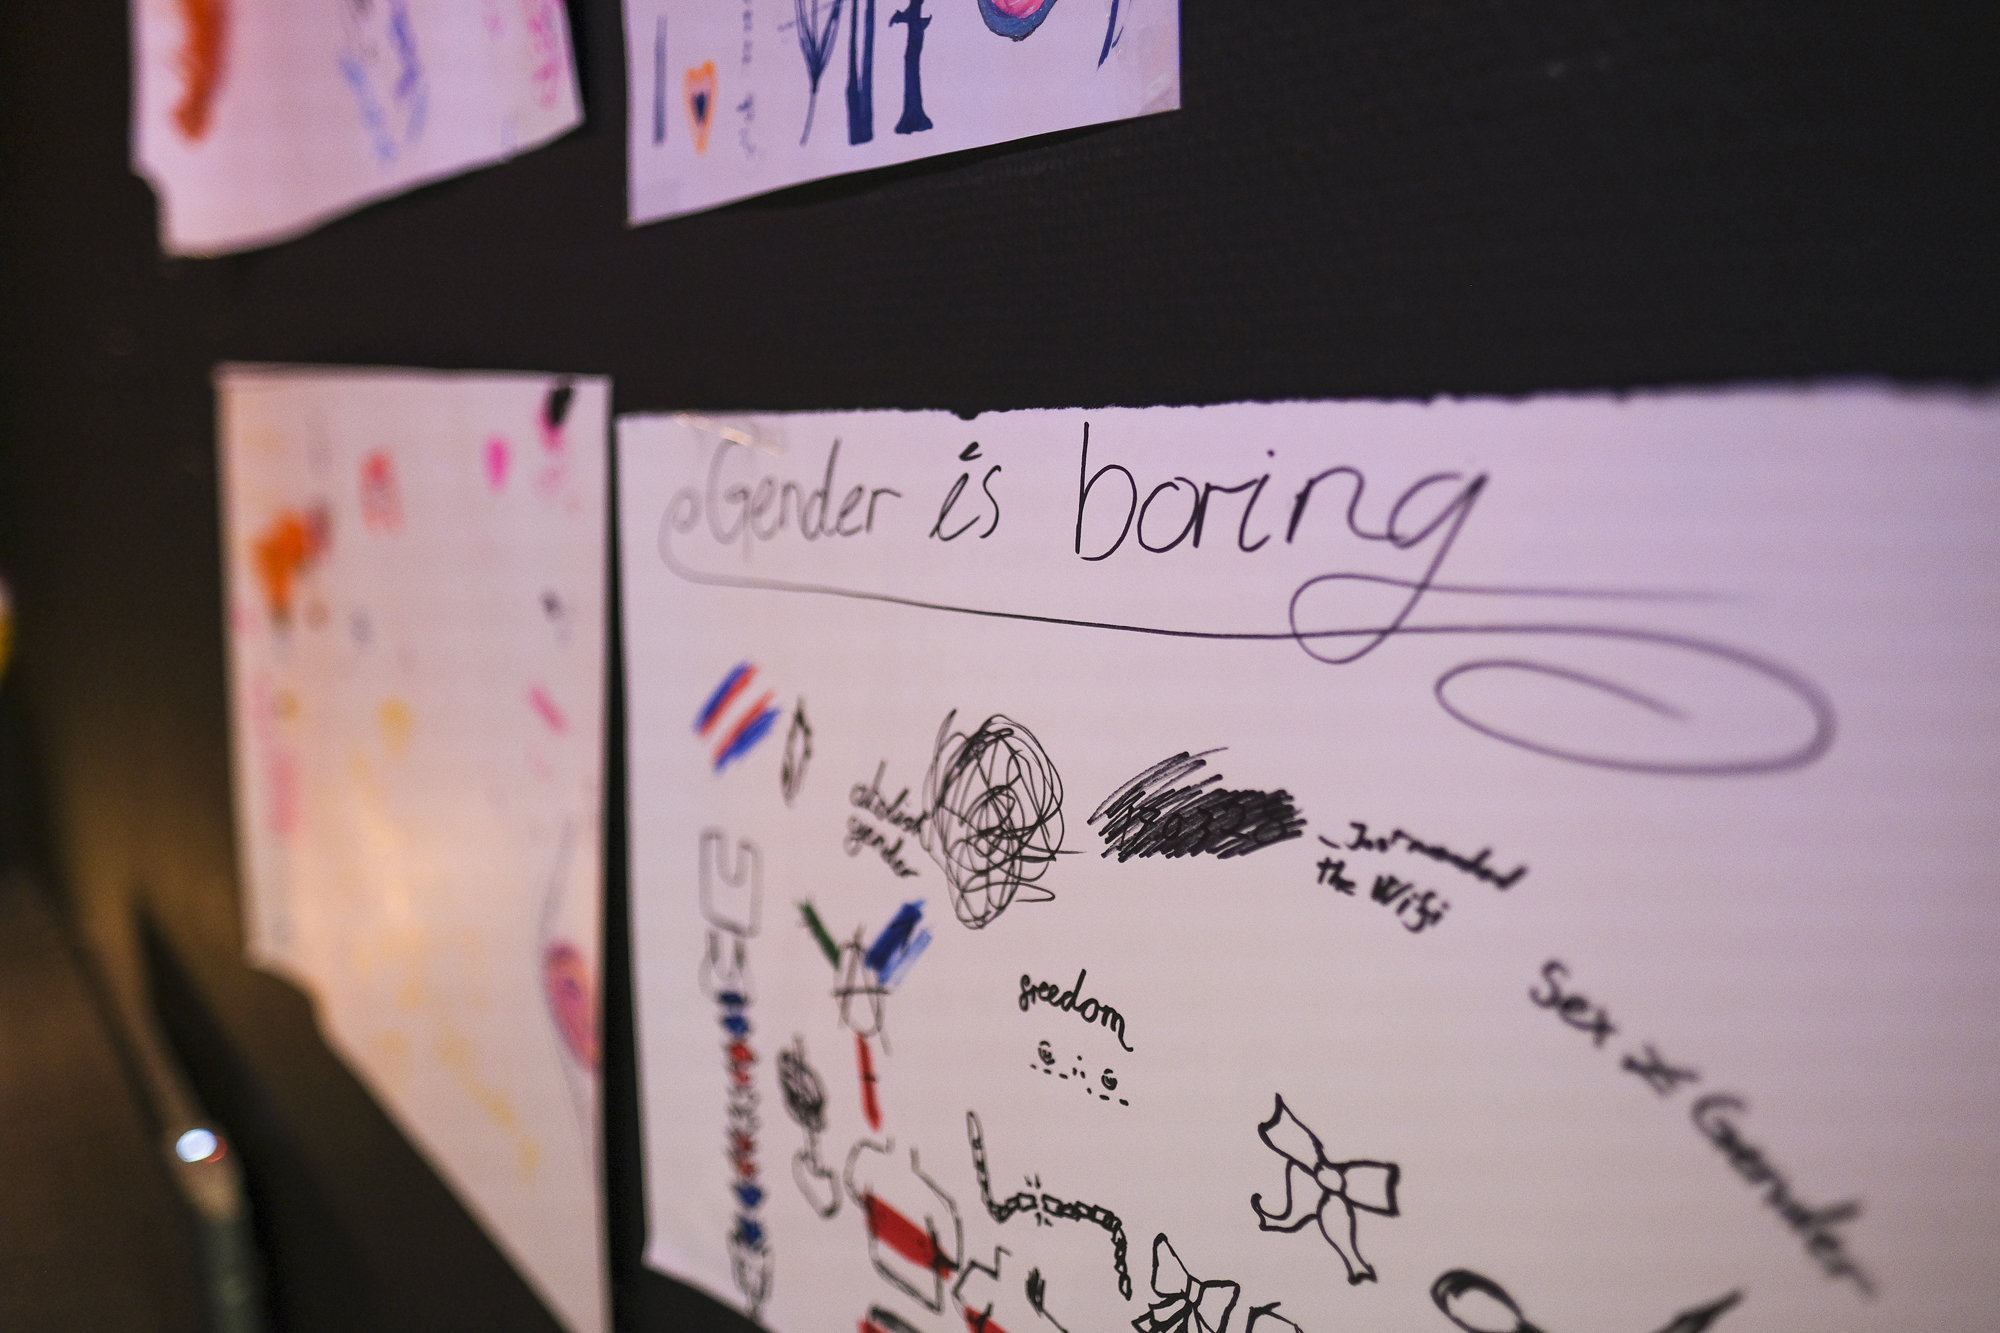 Gender is boring
abolish
gender
Just needed
the Wifi
freedom
Sex ≠ Gender